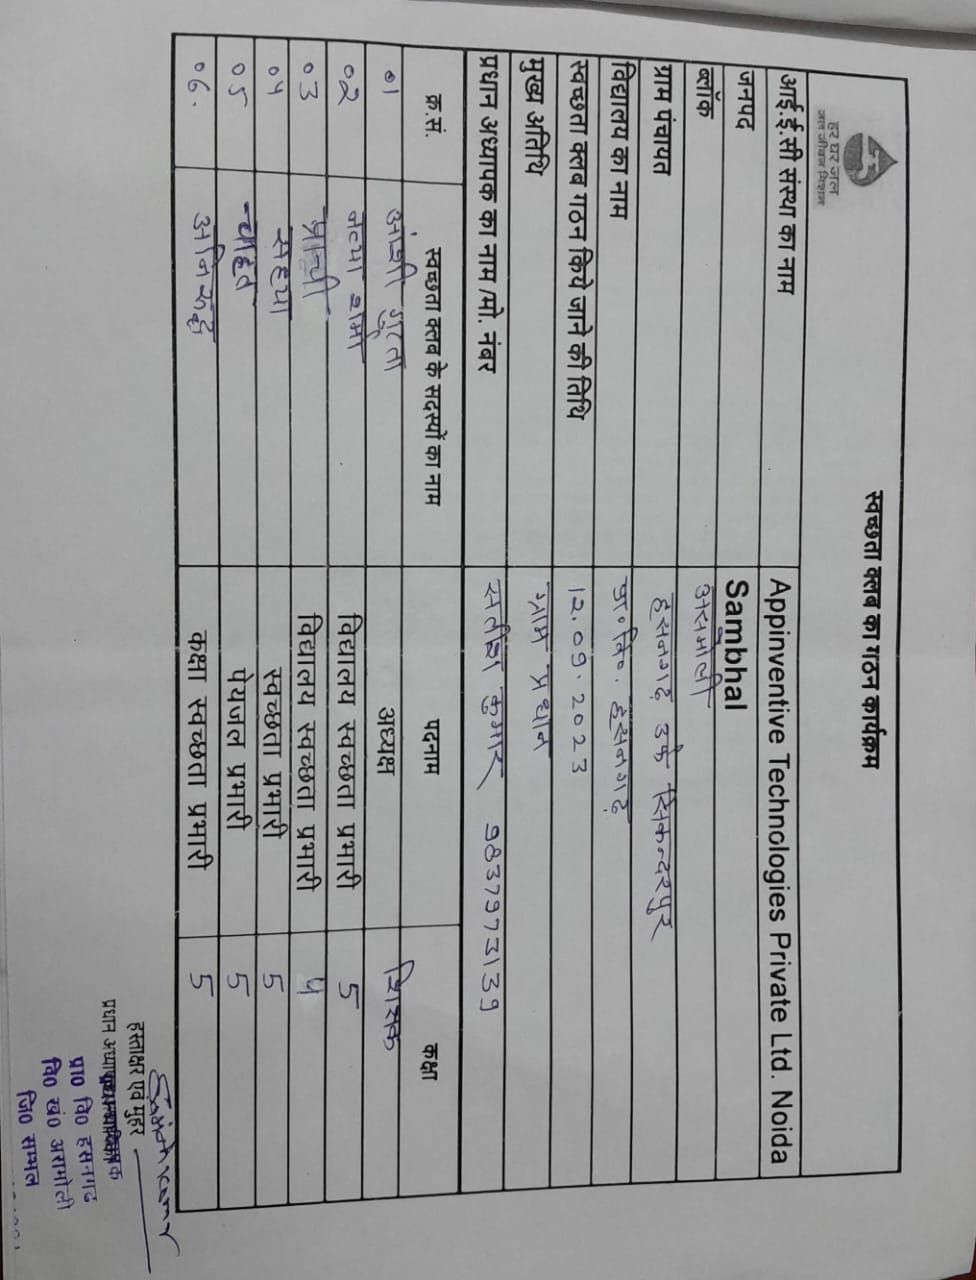 हर घर जल
जल जीवन मिशन
स्वच्छता क्लब का गठन कार्यक्रम
आई.ई.सी संस्था का नाम Appinventive Technologies Private Ltd. Noida
जनपद Sambhal
ब्लॉक असमोली
ग्राम पंचायत हसनगढ़ उर्फ सिकन्दरपुर
विद्यालय का नाम प्रा॰ वि॰ हसनगढ़
स्वच्छता क्लब गठन किये जाने की तिथि 12.09.2023
मुख्य अतिथि ग्राम प्रधान
प्रधान अध्यापक का नाम /मो. नंबर सतीश कुमार 9837973139
क्र.सं. स्वच्छता क्लब के सदस्यों का नाम पदनाम कक्षा
01 अंशी गुप्ता अध्यक्ष शिक्षक
02 शर्मा विद्यालय स्वच्छता प्रभारी 5
03 प्राची विद्यालय स्वच्छता प्रभारी 4
04 स्वच्छता प्रभारी 5
05 चाहत पेयजल प्रभारी 5
06. अनिरुद्ध कक्षा स्वच्छता प्रभारी 5
हस्ताक्षर एवं मुहर
प्रधान
प्रा0 वि0 हसनगढ़
वि0 खं0 असमोली
जि0 सम्भल